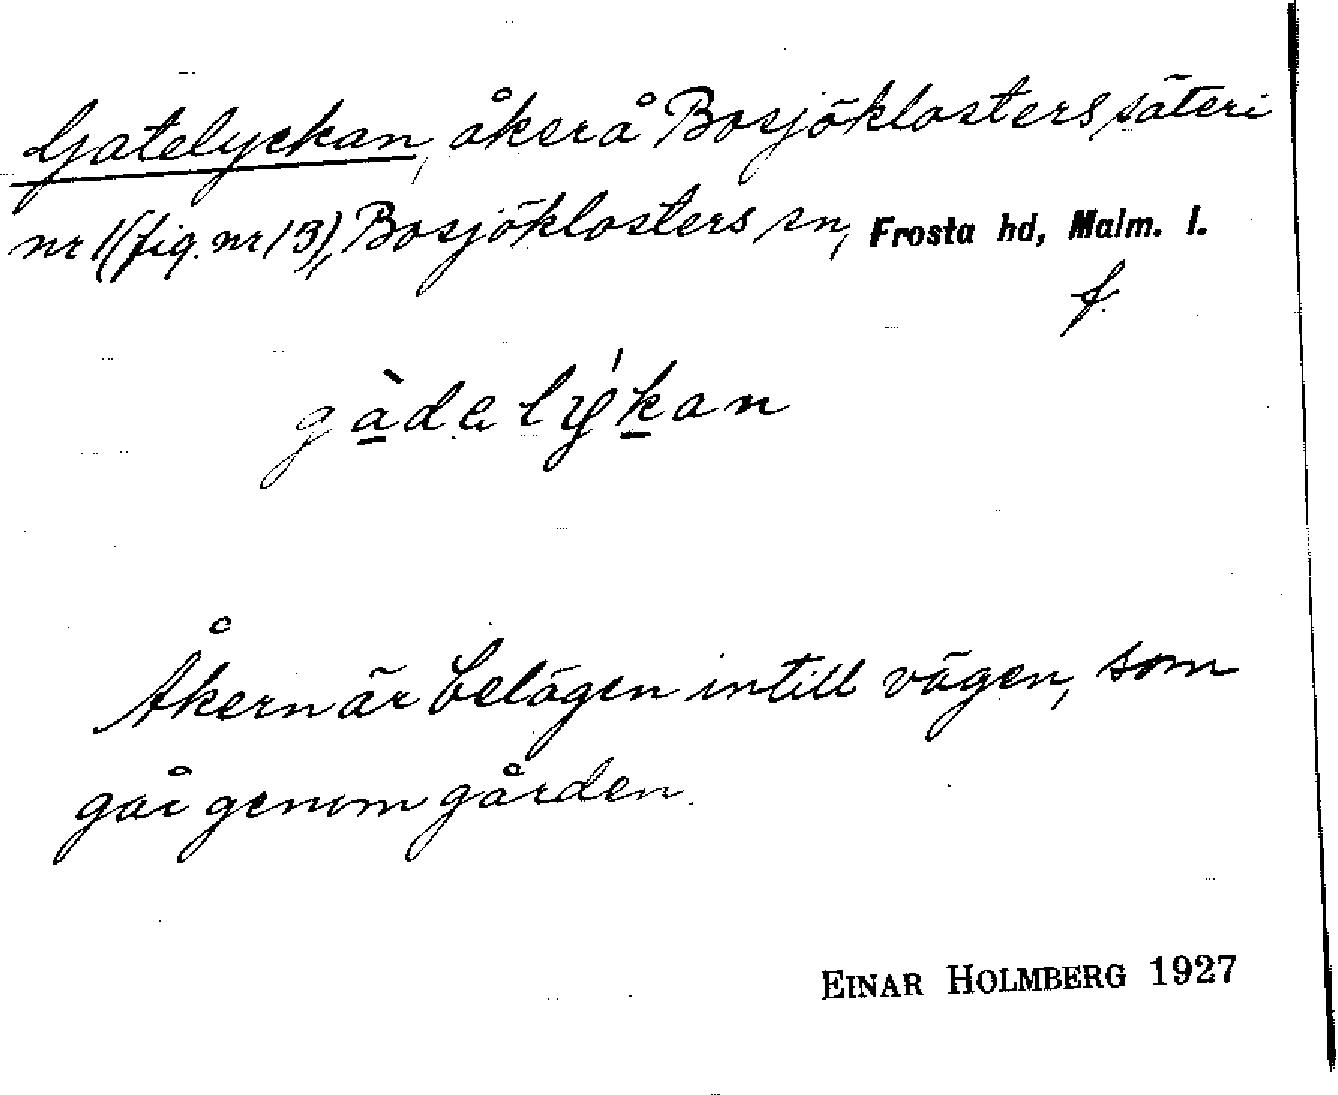 Gatelyckan, åker å Bosjöklosters säteri
nr 1 (fig. nr 13), Bosjöklosters sn, Frosta hd, Malm. l.
f.
gàdelýkan
Åkern är belägen intill vägen, som
går genom gården.
EINAR HOLMBERG 1927